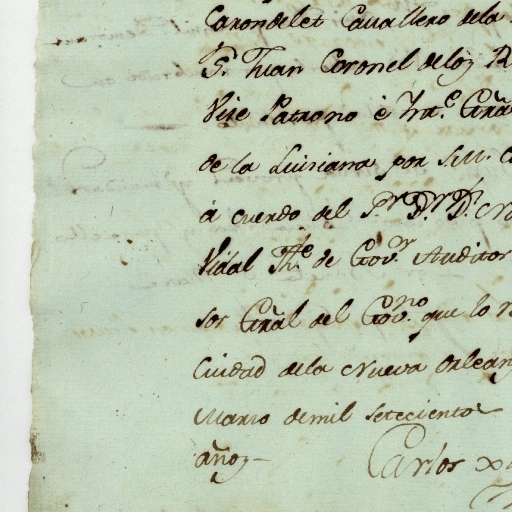 Carondelet Cavallero de la
Sn. Juan Coronel de los R
Vize Patrono é Yn.e Gral
de la Luisiana por S.M. C
á cuerdo del Sr. Dn. Dn. Ni
Vidal The. de Govr. Auditor
sor Gral del Govno. que lo
Ciudad de la Nueva Orleans
Marzo de mil setecientos
años
Carlos